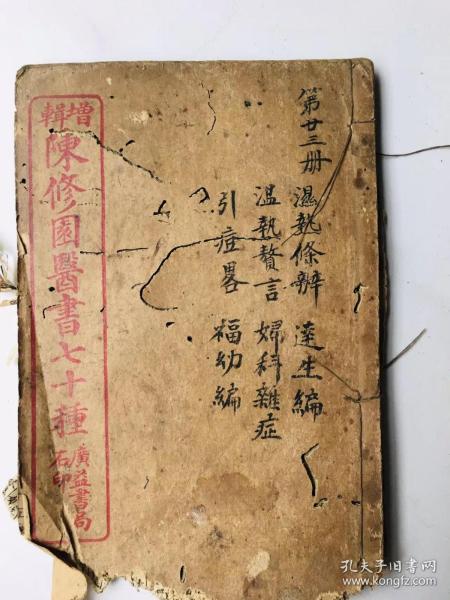 第廿三册
濕熱條辨 達生編
溫熱贅言 婦科雜症
引痘畧 福幼編
增輯
陳修園醫書七十種
廣益書局
石印
孔夫子旧书网
www.kongfz.com